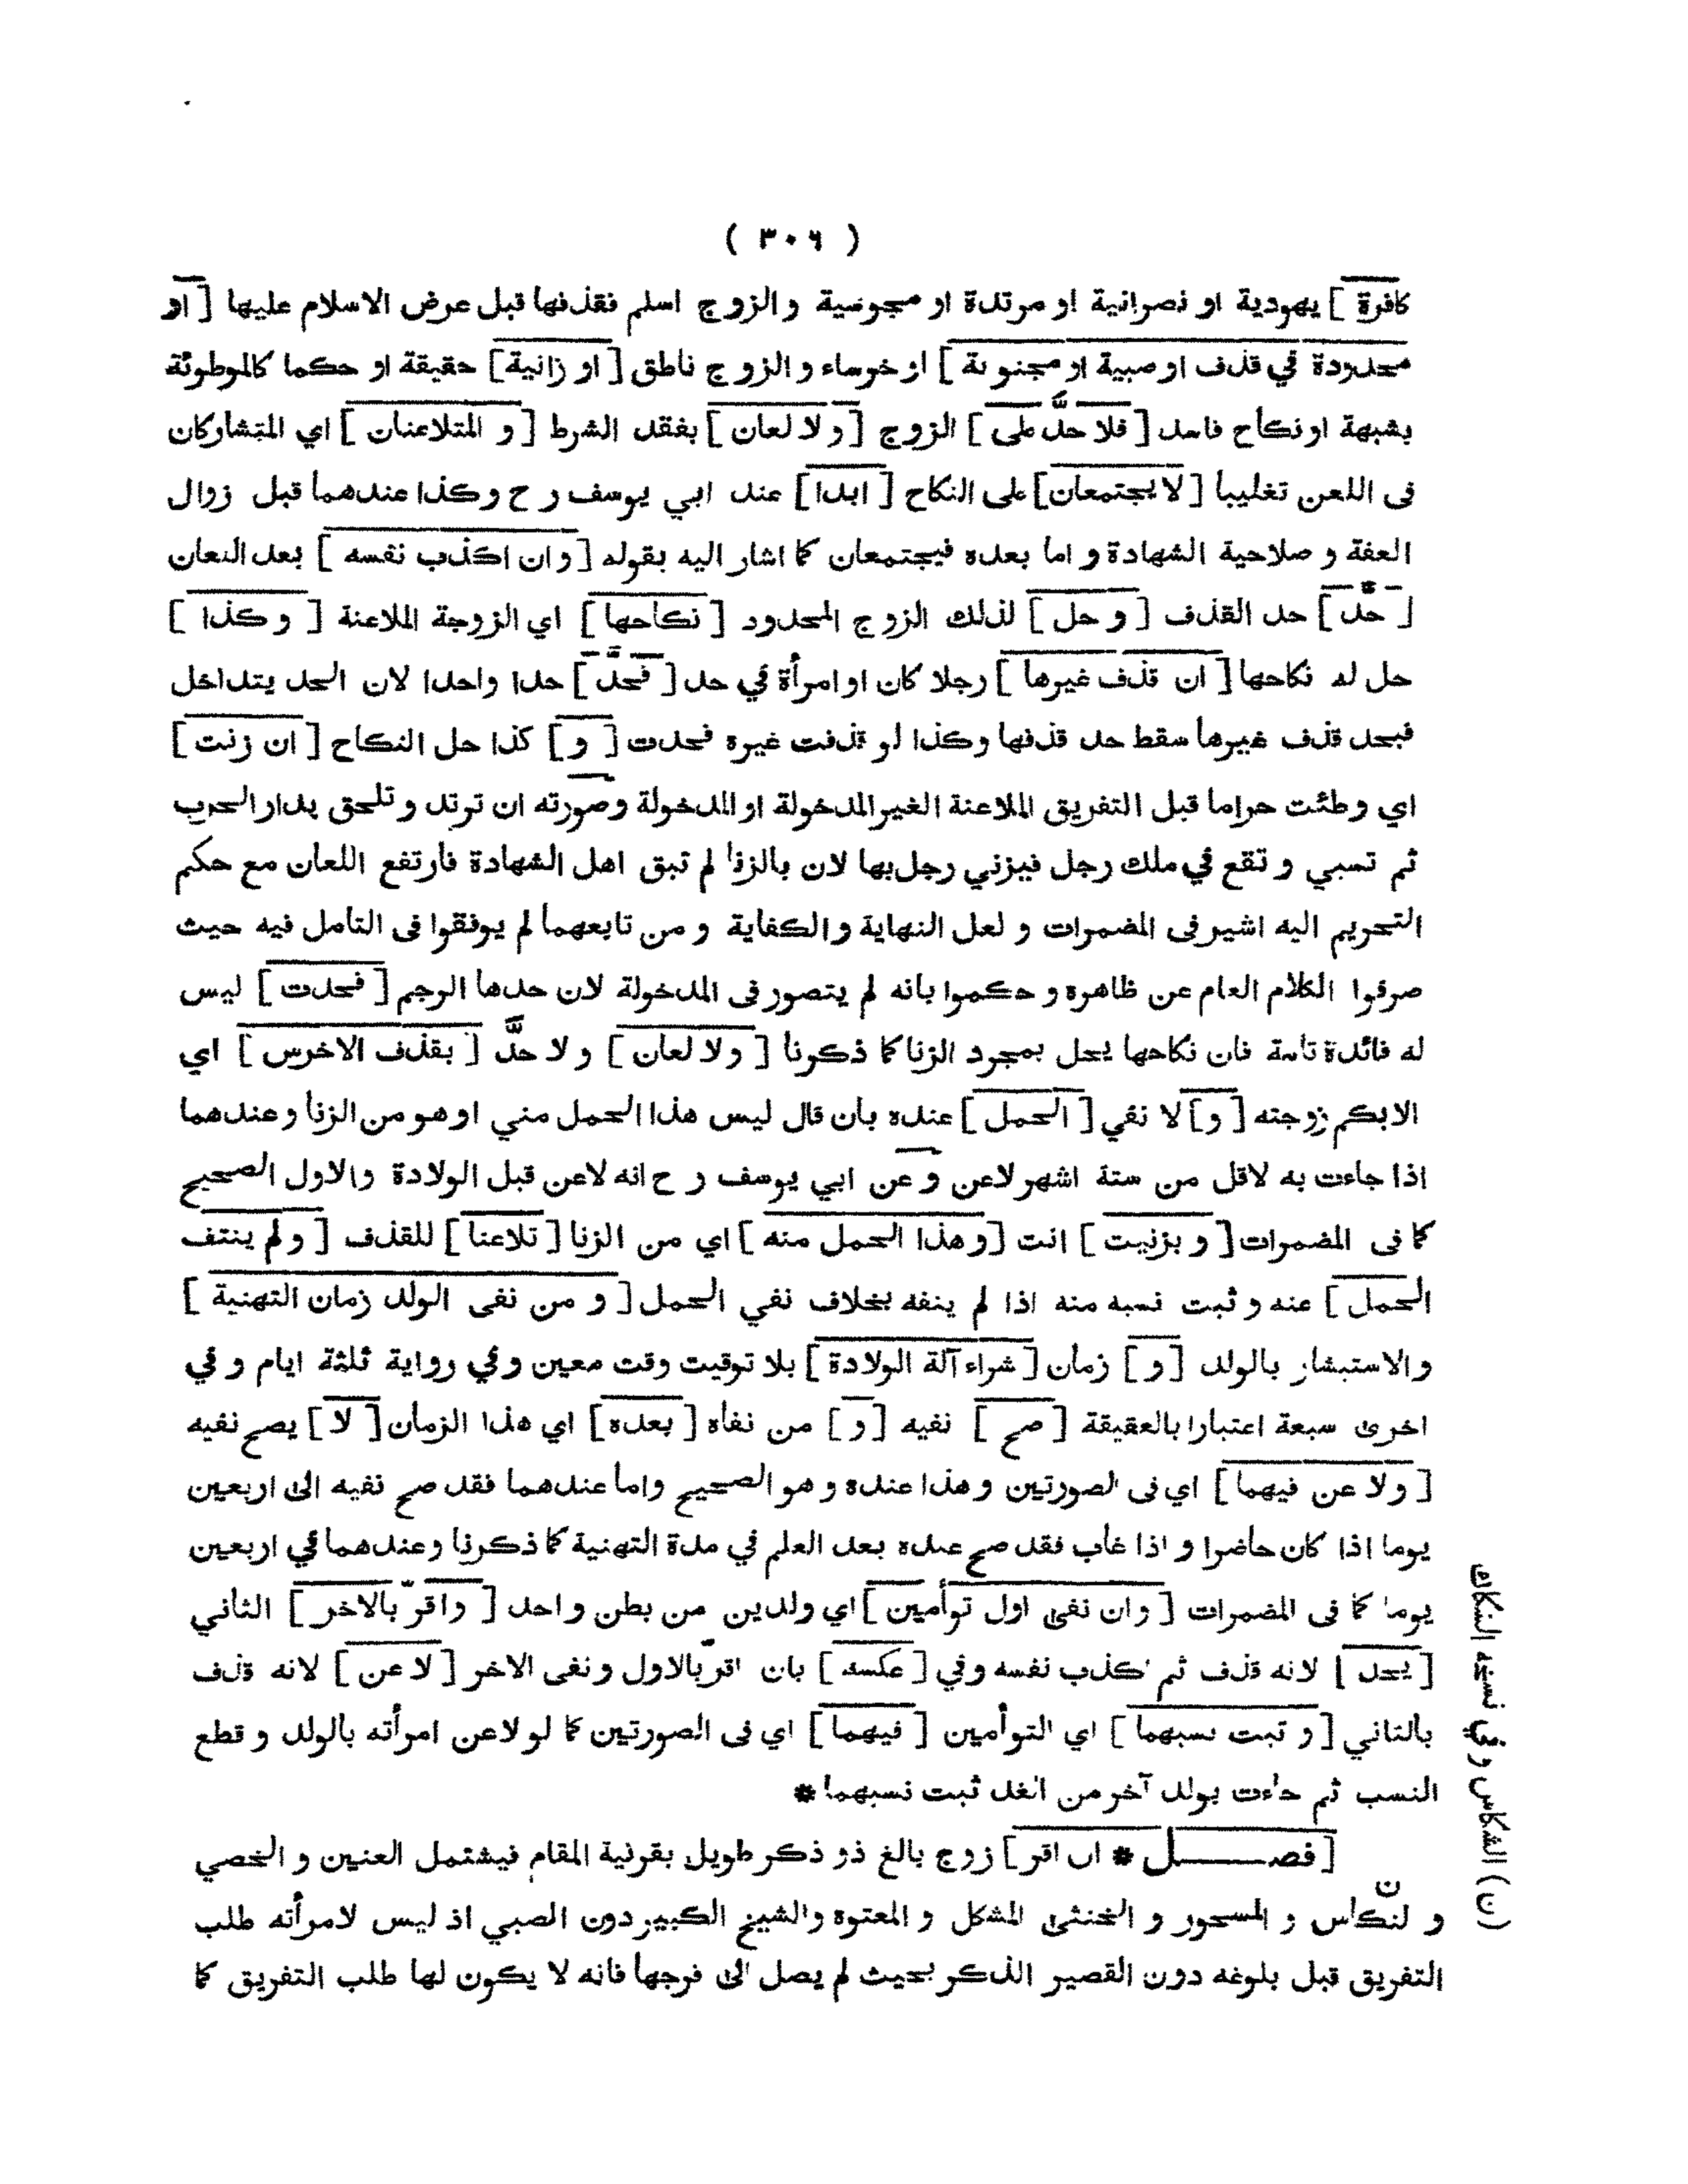 ( ٣٠٦ )
كافرة ] يهودية او نصرانية او مرتدة او مجوسية والزوج اسلم فقذفها قبل عرض الاسلام عليها [ او
محدودة في قذف او صبية او مجنونة ] او خرساء والزوج ناطق [ او زانية ] حقيقة او حكما كالموطوئة
بشبهة او نكاح فاسد [ فلا حدّ على ] الزوج [ ولا لعان ] بفقد الشرط [ و المتلاعنان ] اي المتشاركان
فى اللعن تغليبا [ لا يجتمعان ] على النكاح [ ابدا ] عند ابي يوسف رح وكذا عندهما قبل زوال
العفة و صلاحية الشهادة و اما بعده فيجتمعان كما اشار اليه بقوله [ وان اكذب نفسه ] بعد اللعان
[ حدّ ] حد القذف [ و حل ] لذلك الزوج المحدود [ نكاحها ] اي الزوجة الملاعنة [ وكذا ]
حل له نكاحها [ ان قذف غيرها ] رجلا كان او امرأة في حد [ فحدّ ] حدا واحدا لان الحد يتداخل
فبحد قذف غيرها سقط حد قذفها وكذا لو قذفت غيره فحدت [ و ] كذا حل النكاح [ ان زنت ]
اي وطئت حراما قبل التفريق الملاعنة الغير المدخولة او المدخولة وصورته ان ترتد وتلحق بدار الحرب
ثم تسبي و تقع في ملك رجل فيزني رجل بها لان بالزنا لم تبق اهل الشهادة فارتفع اللعان مع حكم
التحريم اليه اشير فى المضمرات و لعل النهاية والكفاية و من تابعهما لم يوفقوا فى التامل فيه حيث
صرفوا الكلام العام عن ظاهره و حكموا بانه لم يتصور فى المدخولة لان حدها الرجم [ فحدت ] ليس
له فائدة تامة فان نكاحها يحل بمجرد الزنا كما ذكرنا [ ولا لعان ] ولا حدّ [ بقذف الاخرس ] اي
الابكم زوجته [ و ] لا نفي [ الحمل ] عنده بان قال ليس هذا الحمل مني او هو من الزنا وعندهما
اذا جاءت به لاقل من ستة اشهر لاعن وعن ابي يوسف رح انه لاعن قبل الولادة والاول الصحيح
كما فى المضمرات [ و بزنيت ] انت [ وهذا الحمل منه ] اي من الزنا [ تلاعنا ] للقذف [ ولم ينتف
الحمل ] عنه و ثبت نسبه منه اذا لم ينفه بخلاف نفي الحمل [ و من نفى الولد زمان التهنية ]
والاستبشار بالولد [ و ] زمان [ شراء آلة الولادة ] بلا توقيت وقت معين وفي رواية ثلثة ايام و في
اخرى سبعة اعتبارا بالعقيقة [ صح ] نفيه [ و ] من نفاه [ بعده ] اي هذا الزمان [ لا ] يصح نفيه
[ ولا عن فيهما ] اي فى الصورتين وهذا عنده وهو الصحيح واما عندهما فقد صح نفيه الى اربعين
يوما اذا كان حاضرا و اذا غاب فقد صح عنده بعد العلم في مدة التهنية كما ذكرنا وعندهما في اربعين
يوما كما فى المضمرات [ وان نفى اول توأمين ] اي ولدين من بطن واحد [ واقرّ بالاخر ] الثاني
[ يحد ] لانه قذف ثم اكذب نفسه وفي [ عكسه ] بان اقرّ بالاول ونفى الاخر [ لاعن ] لانه قذف
بالثاني [ و ثبت نسبهما ] اي التوأمين [ فيهما ] اي فى الصورتين كما لو لاعن امرأته بالولد و قطع
النسب ثم جاءت بولد آخر من الغد ثبت نسبهما *
[ فصــــل * ان اقر ] زوج بالغ ذو ذكر طويل بقرنية المقام فيشتمل العنين و الخصي
ن
و لنكاس و المسحور و الخنثى المشكل و المعتوه والشيخ الكبير دون الصبي اذ ليس لامرأته طلب
التفريق قبل بلوغه دون القصير الذكر بحيث لم يصل الى فرجها فانه لا يكون لها طلب التفريق كما
(ن) الشكاس وفي نسخه النكاك